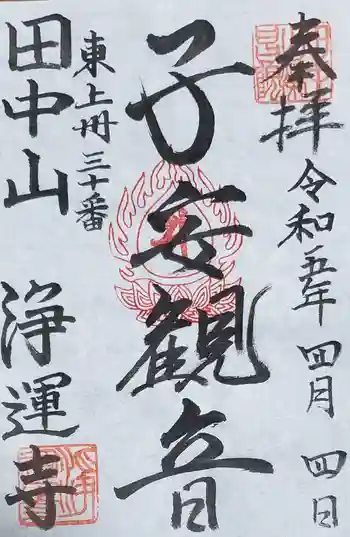 奉拝
令和五年四月四日
子安観音
東上州三十番
田中山
浄運寺